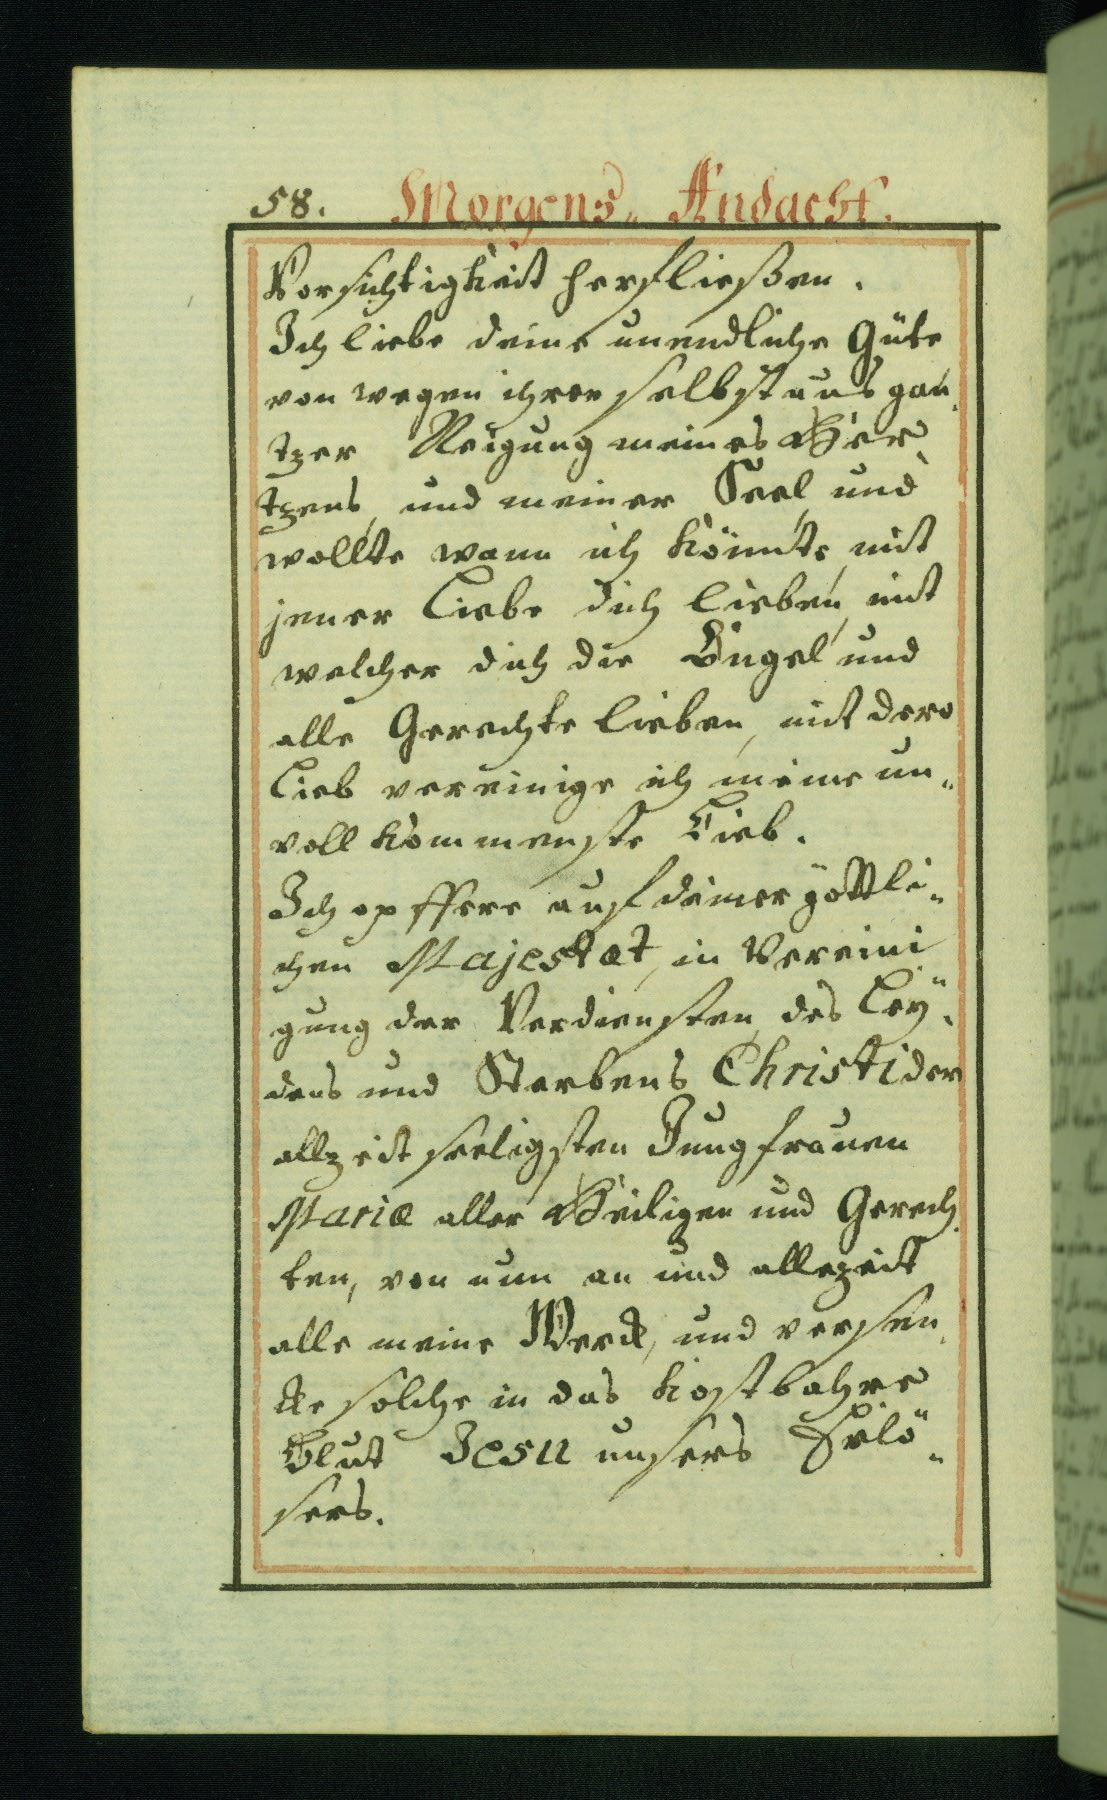 58. Morgens„ Andacht.
Vorsichtigkeit herfließen.
Ich liebe deine unendliche Güte
von wegen ihrer selbst aus gan„
tzer Neigung meines Her„
tzens, und meiner Seel, und
wollte wann ich könnte, mit
jener Liebe dich lieben, mit
welcher dich die Engel und
alle Gerechte lieben, mit dero
Lieb vereinige ich meine un„
vollkommenste Lieb.
Ich opffere auf deiner göttli„
chen Majestæt, in Vereini„
gung der Verdiensten, des Ley„
dens und Sterbens Christi der
allzeit seeligsten Jungfrauen
Mariæ aller Heiligen und Gerech„
ten, von nun an und allezeit
alle meine Werck, und versen„
cke solche in das kostbahre
Blut Jesu unsers Erlö„
sers.